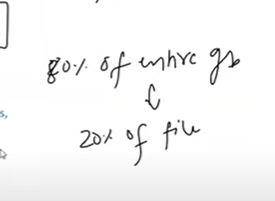 80% of entire gb
↓
20% of file
s,